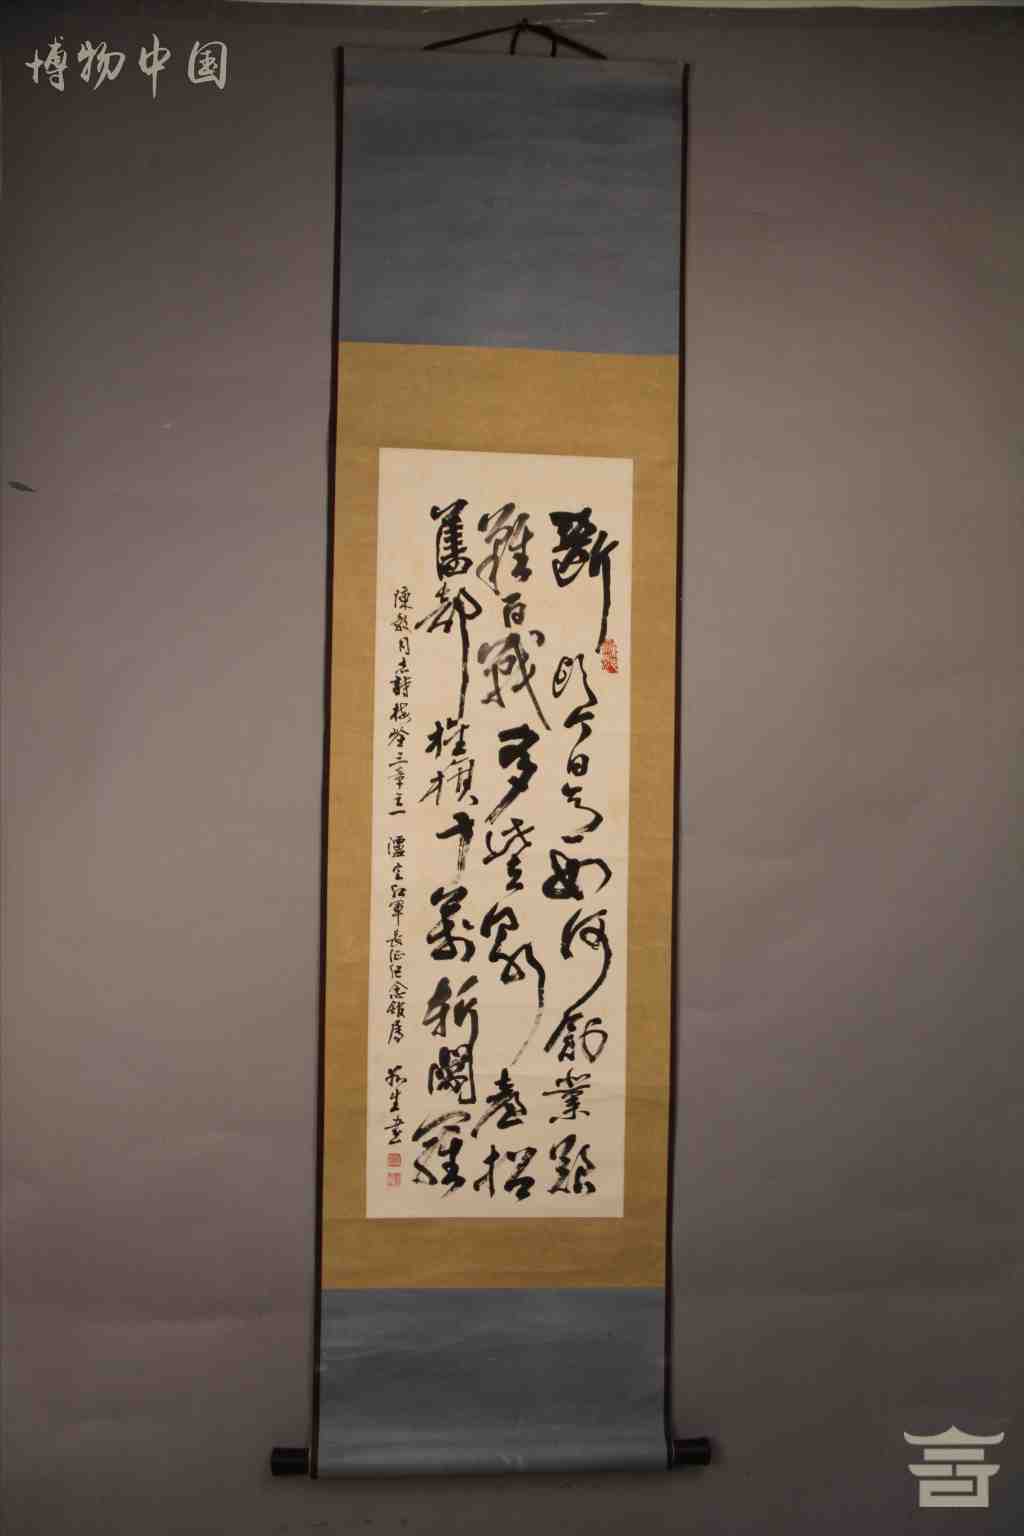 博物中国
断頭今日意如何創業艱
難百戰多此去泉台招
舊部旌旗十萬斬閻羅
陳毅同志詩梅嶺三章之一 瀘定紅軍長征紀念館属
生書